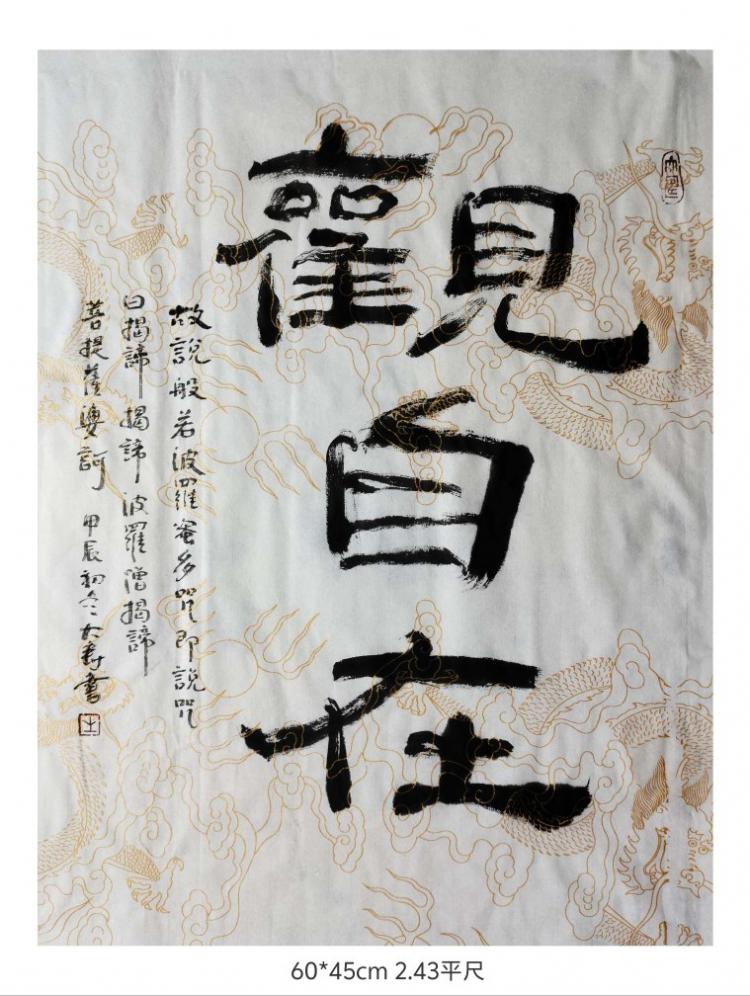 觀自在
故說般若波羅蜜多咒即說咒
曰揭諦揭諦波羅僧揭諦
菩提薩婆訶甲辰初冬大壽書
60*45cm 2.43平尺